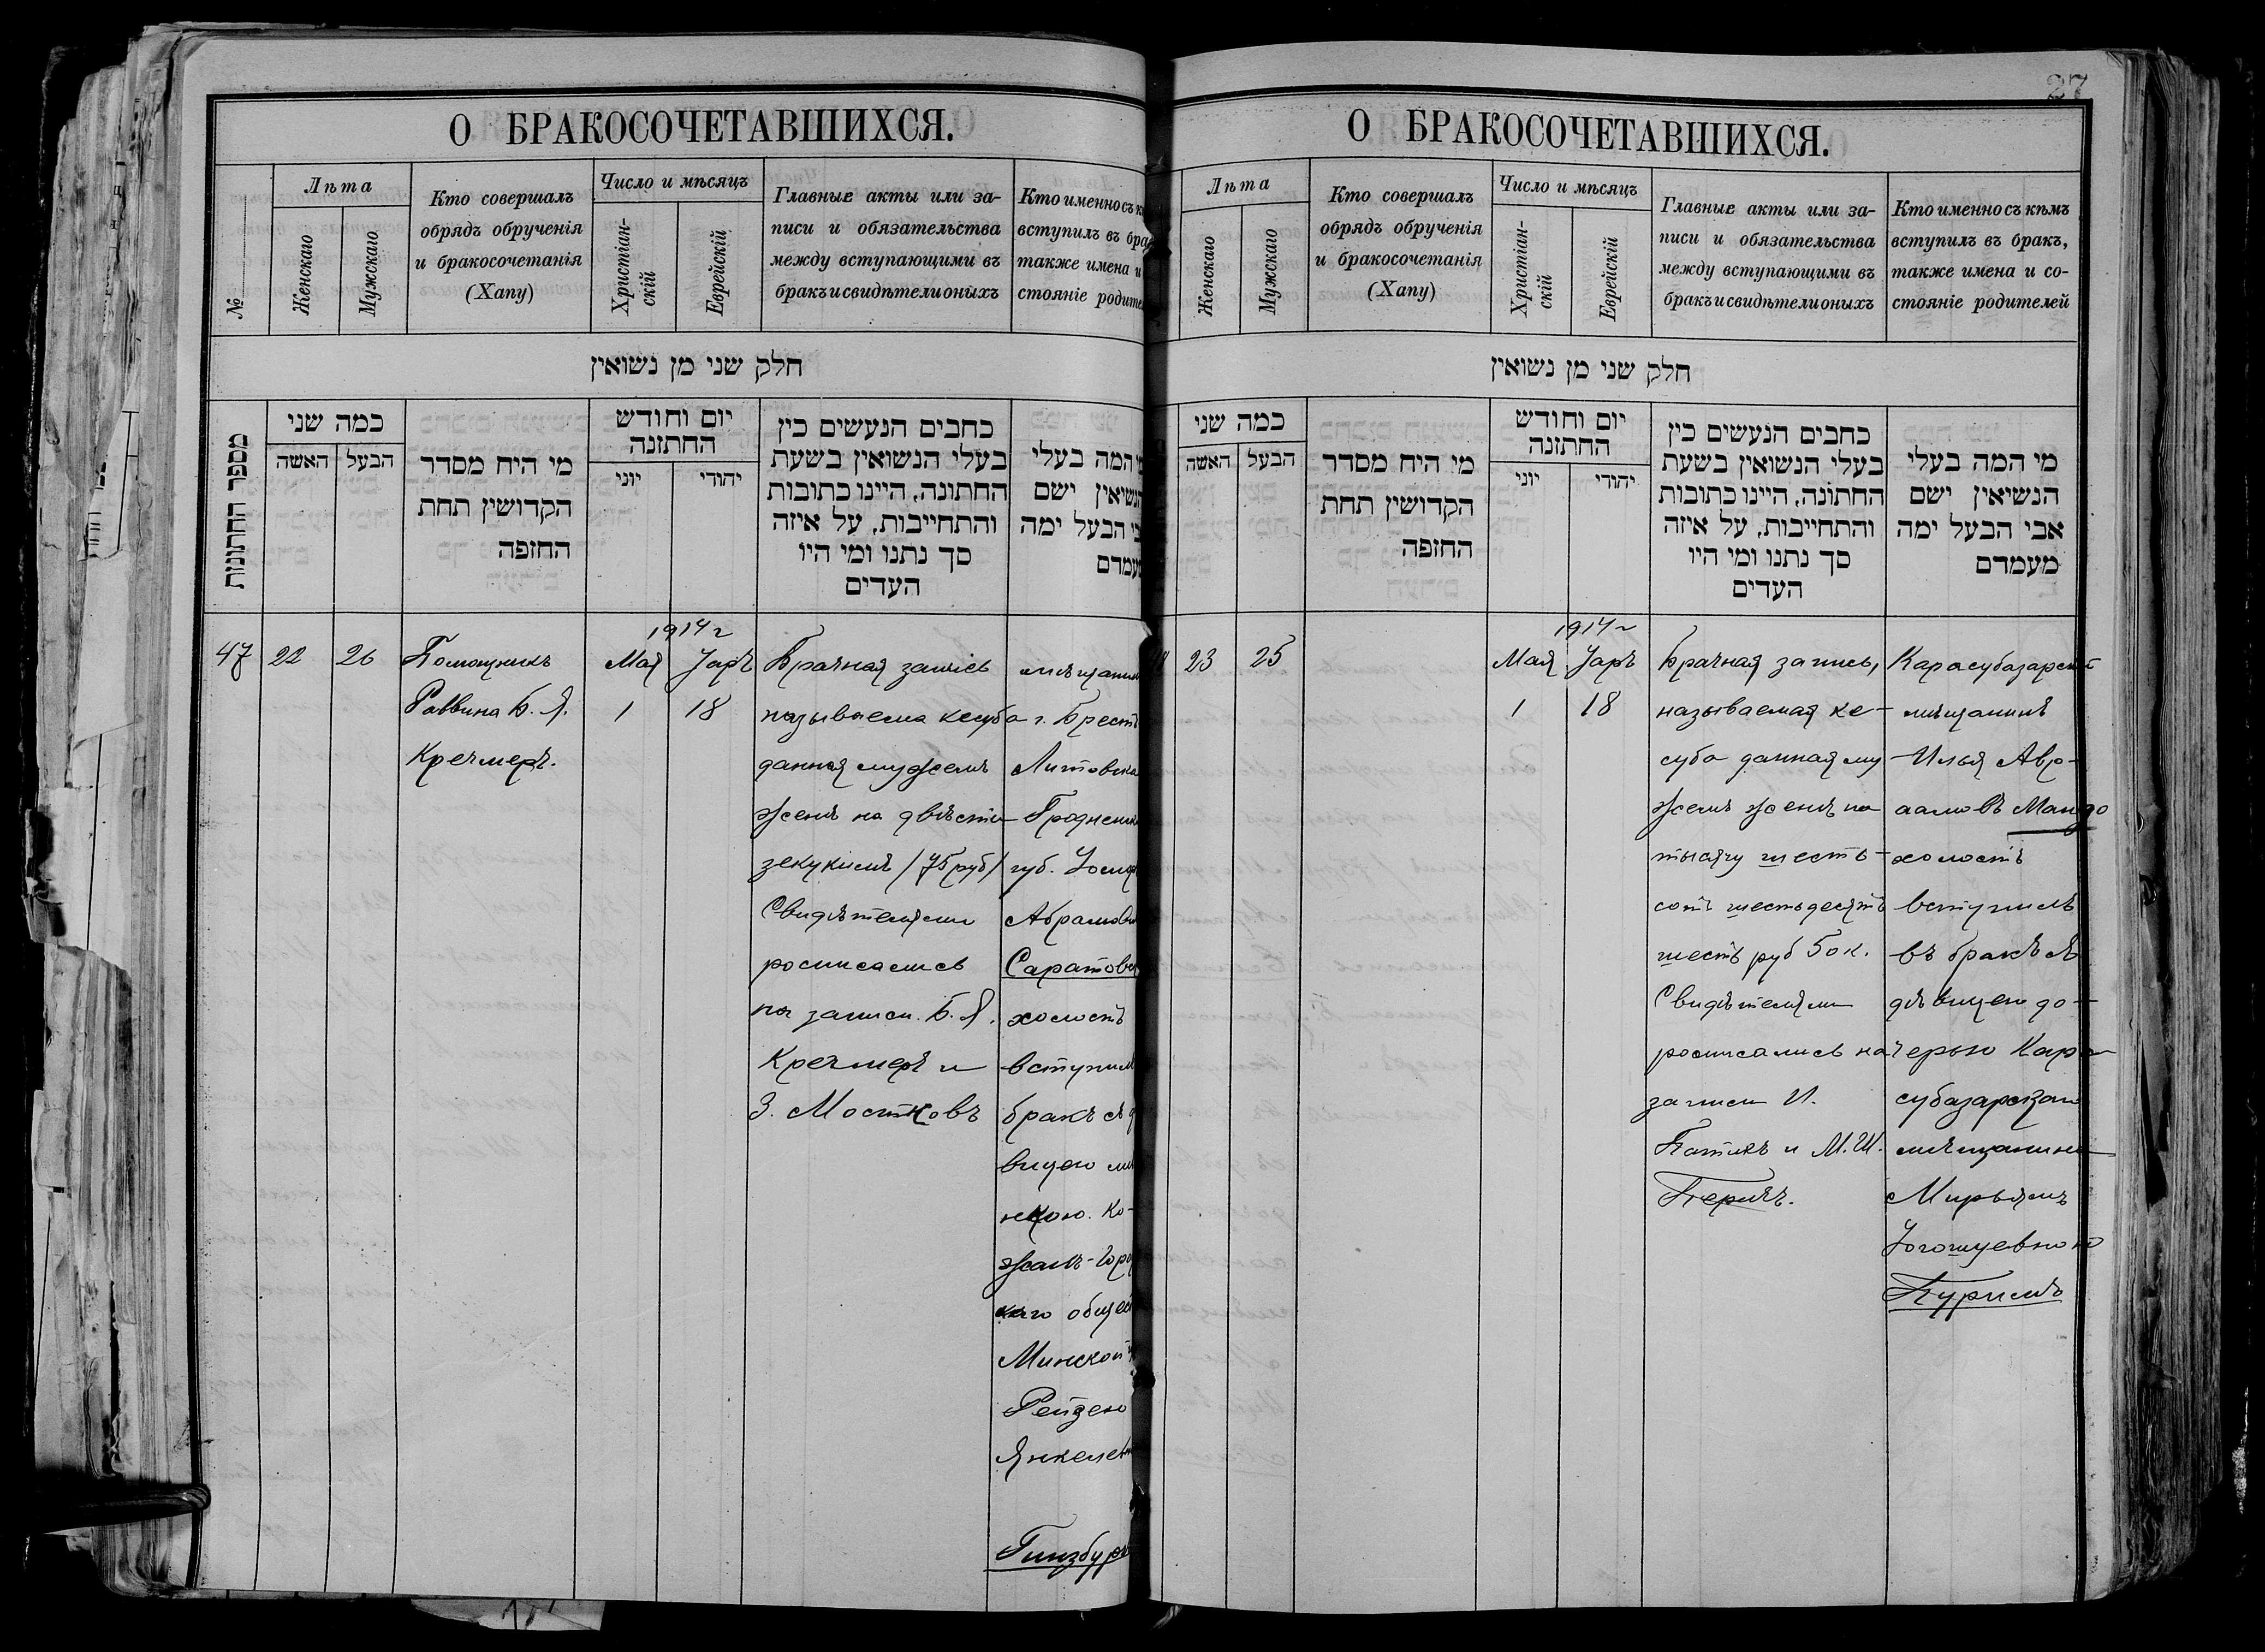 27
О БРАКОСОЧЕТАВШИХСЯ.
№
Лѣта
Женскаго
Мужскаго
Кто совершалъ
обрядъ обрученія
и бракосочетанія
(Хапу)
Число и мѣсяцъ
Христіан-
скій
Еврейскій
Главные акты или за-
писи и обязательства
между вступающими въ
бракъ и свидѣтели оныхъ
Кто именно съ к
вступилъ въ бра
также имена и
стояніе родите
חלק שני מן נשואין
מספר החתונות
כמה שני
האשה
הבעל
מי היח מסדר
הקדושין תחת
החזפה
יום וחודש
החתזנה
יוני
יהודי
כחבים הנעשים כין
בעלי הנשואין בשעת
החתונה, היינו כתובות
והתחייבות, על איזה
סך נתנו ומי היו
העדים
י המה בעלי
הנשיאין ישם
בי הבעל ימה
מעמדם
47
22
26
Помощникъ
Раввина Б. Я.
Кречмеръ.
1914 г
Мая
1
Іяръ
18
Брачная запись
называема кесуба
данная мужемъ
женѣ на двѣсти
зекукимъ (75 руб)
Свидѣтелями
росписались
на записи. Б. Я.
Кречмеръ и
З. Мостковъ
мѣщанин
г. Брестъ
Литовска
Гродненск
губ. Іосиф
Абрамови
Саратовс
холостъ
вступилъ
бракъ съ д
вицею ми
нскою. Ко-
жанъ-Горо
каго общес
Минской
Рейзею
Янкелев
Гинзбург
О БРАКОСОЧЕТАВШИХСЯ.
Лѣта
Женскаго
Мужскаго
Кто совершалъ
обрядъ обрученія
и бракосочетанія
(Хапу)
Число и мѣсяцъ
Христіан-
скій
Еврейскій
Главные акты или за-
писи и обязательства
между вступающими въ
бракъ и свидѣтели оныхъ
Кто именно съ кѣмъ
вступилъ въ бракъ,
также имена и со-
стояніе родителей
חלק שני מן נשואין
כמה שני
האשה
הבעל
מי היח מסדר
הקדושין תחת
החזפה
יום וחודש
החתזנה
יוני
יהודי
כחבים הנעשים כין
בעלי הנשואין בשעת
החתונה, היינו כתובות
והתחייבות, על איזה
סך נתנו ומי היו
העדים
מי המה בעלי
הנשיאין ישם
אבי הבעל ימה
מעמדם
23
25
1914 г
Мая
1
Іяръ
18
Брачная запись,
называемая ке-
суба данная му
жемъ женѣ на
тысячу шесть-
сотъ шестьдесятъ
шесть руб 50 к.
Свидѣтелями
росписались на
записи И.
Патикъ и М. Ш.
Перичъ.
Карасубазарскій
мѣщанинъ
Илья Авра-
амовъ Мангo
холостъ
вступилъ
въ бракъ съ
дѣвицею до-
черью Кара
субазарскаго
мѣщанина
Мирьямъ
Іогошуевною
Пуримъ